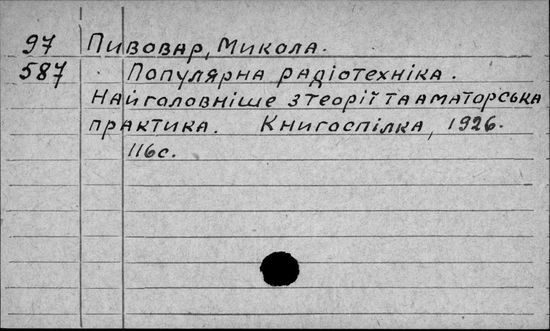 97 Пивовар, Микола.
587 Популярна радіотехніка.
Найголовніше з теорії та аматорська
практика. Книгоспілка, 1926.
116с.